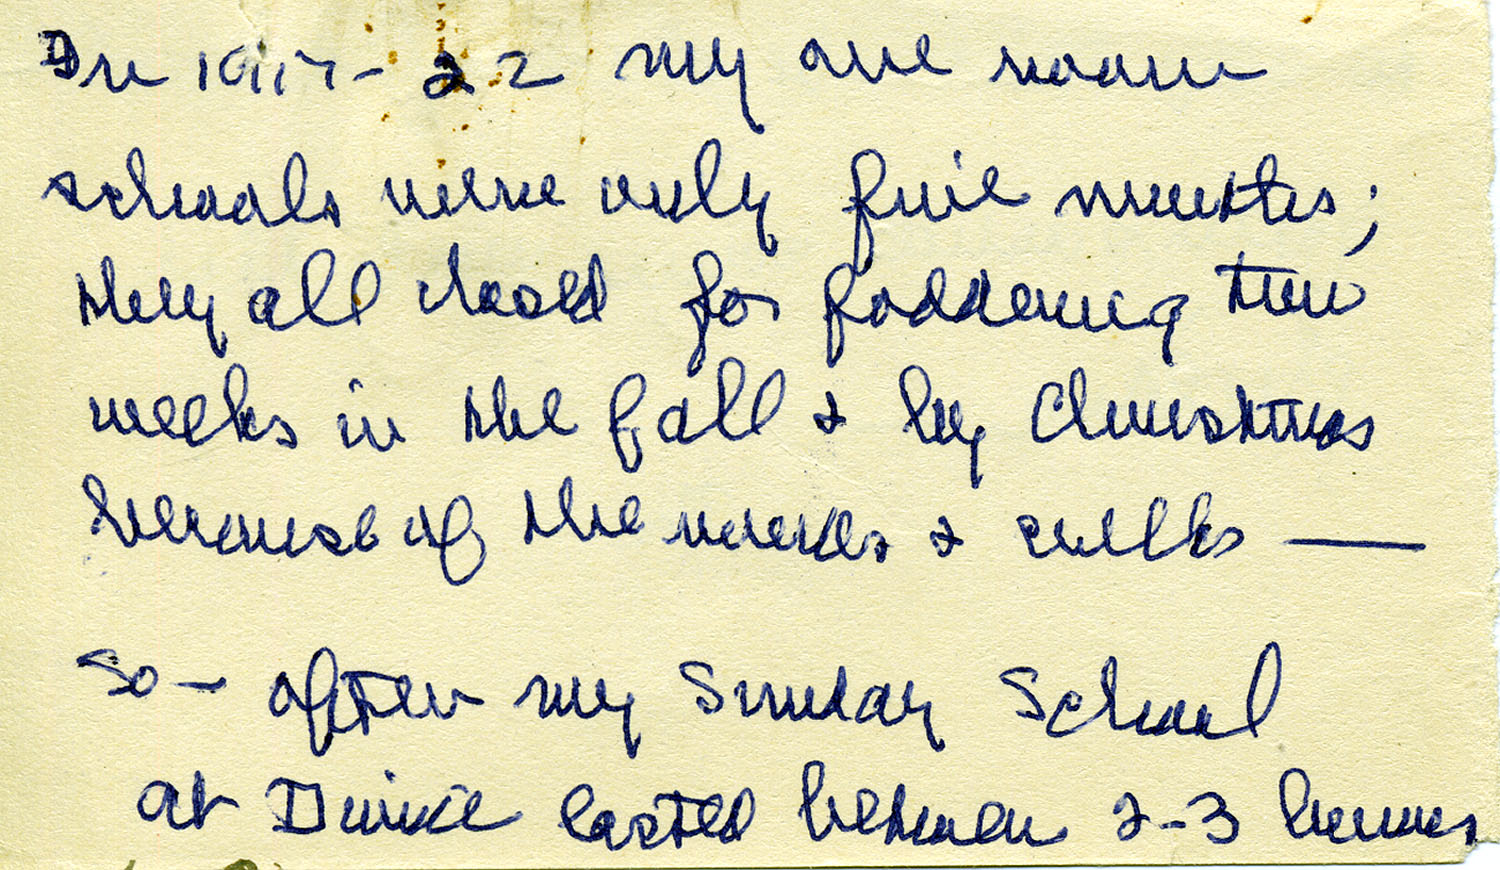 In 1917-22 my one room
schools were only five months;
they all closed for foddering two
weeks in the fall & by Christmas
because of the roads & colds —
So — after my Sunday School
at lasted between 2-3 hours